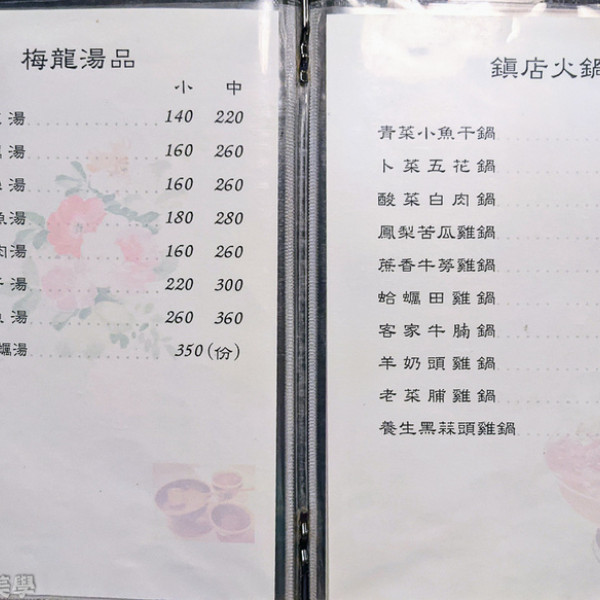 梅龍湯品
小 中
湯 140 220
湯 160 260
湯 160 260
魚湯 180 280
肉湯 160 260
湯 220 300
湯 260 360
蠣湯 350(份)
鎮店火鍋
青菜小魚干鍋
卜菜五花鍋
酸菜白肉鍋
鳳梨苦瓜雞鍋
蔗香牛蒡雞鍋
蛤蠣田雞鍋
客家牛腩鍋
羊奶頭雞鍋
老菜脯雞鍋
養生黑蒜頭雞鍋
美學